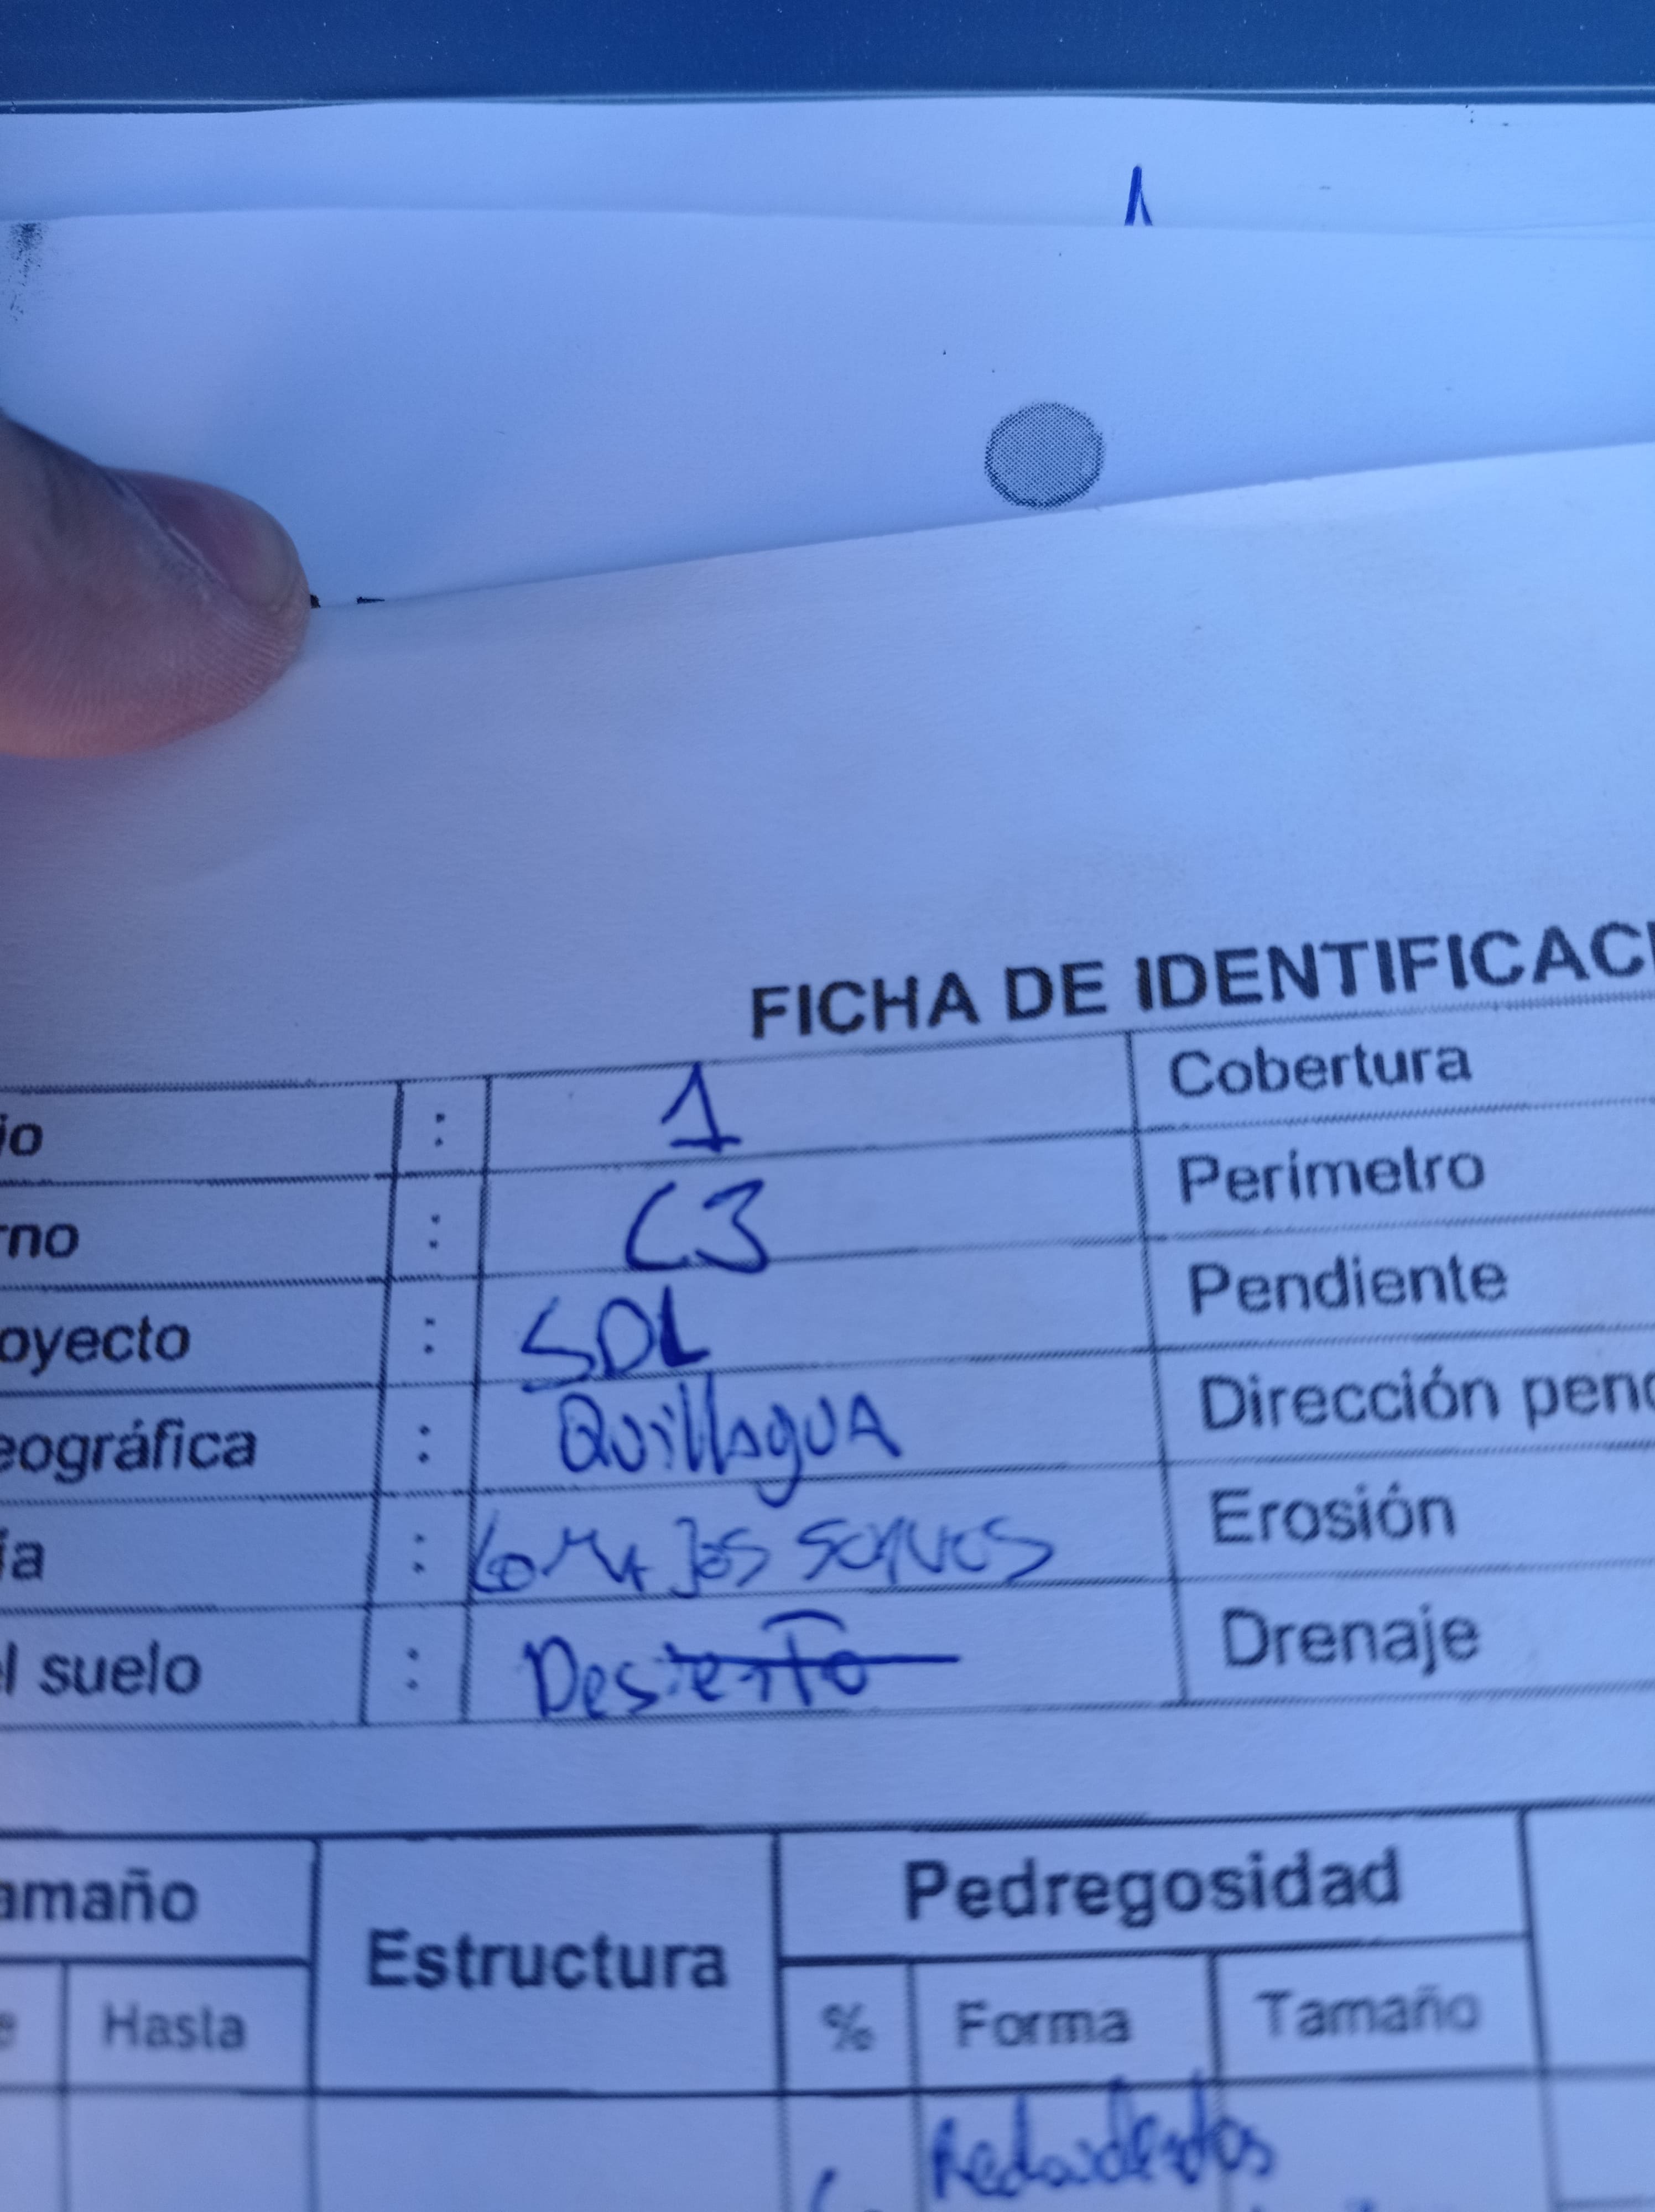 FICHA DE IDENTIFICACI
jo : 1 Cobertura
rno : C3 Perímetro
oyecto : SDL Pendiente
eográfica : QuillaguA Dirección pend
ía : Lomajes Erosión
l suelo : Desierto Drenaje
amaño Estructura Pedregosidad
e Hasta % Forma Tamaño